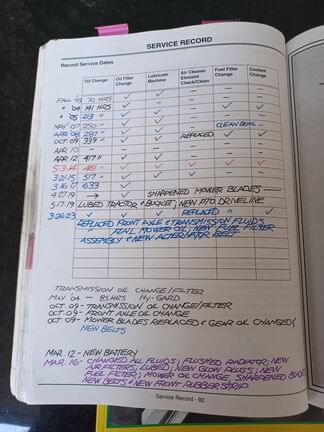 SERVICE RECORD
Record Service Dates
Oil Change Oil Filter Change Lubricate Machine Air Cleaner Element Check/Clean Fuel Filter Change Coolant Change
FALL 03 70 HRS ✓
" '04 141 HRS ✓ ✓ ✓ ✓
" '05 213 " ✓ ✓
MAY 07 250 " ✓ CLEAN BOWL
APR 08 287 " ✓ ✓
OCT 09 339 " ✓ ✓ REPLACED ✓ ✓
APR 10
APR 12 417 " ✓ ✓ ✓
5-3-14 481 " ✓ ✓ ✓ ✓ ✓
3-21-15 517 " ✓ ✓ ✓
3-16-17 633 ✓
4-27-19 SHARPENED MOWER BLADES
5-17-19 LUBED TRACTOR & BUCKET; NEW PTO DRIVELINE
3-26-23 ✓ ✓ ✓ REPLACED " ✓
REPLACED FRONT AXLE & TRANSMISSION FLUIDS
" FUEL MOWER OIL; NEW FUEL FILTER
ASSEMBLY & NEW ALTERNATOR BELT
TRANSMISSION OIL CHANGE/FILTER
MAY 04 - 85 HRS HY-GARD
OCT 09 - TRANSMISSION OIL CHANGE/FILTER
OCT 09 - FRONT AXLE OIL CHANGE
OCT 09 - MOWER BLADES REPLACED & GEAR OIL CHANGED &
NEW BELTS
MAR. 12 - NEW BATTERY
MAR. 16 - CHANGED ALL FLUIDS; FLUSHED RADIATOR; NEW
AIR FILTERS; LUBED; NEW GLOW PLUGS; NEW
FUEL FILTER; MOWER OIL CHANGE, SHARPENED BLADE
NEW BELTS & NEW FRONT RUBBER STRIP
Service Record - 92